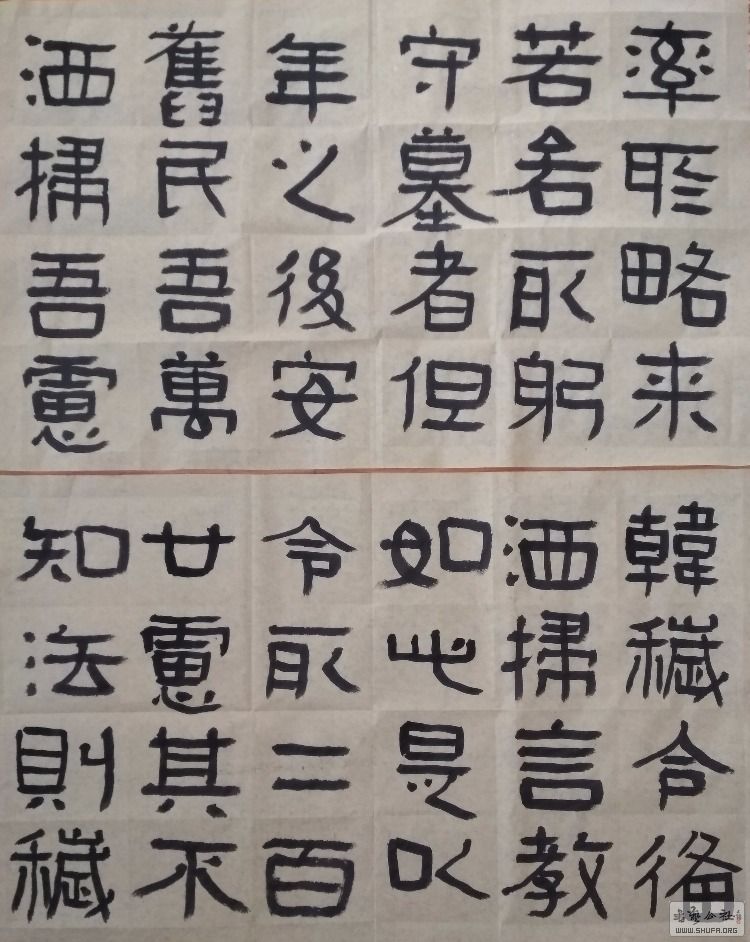 率所略来
若取躬
守墓者但
年之後安
舊民吾萬
洒掃吾慮
韓穢令備
洒掃言教
如此是以
令取二百
廿慮其不
知法則穢
书法公社
WWW.SHUFA.ORG